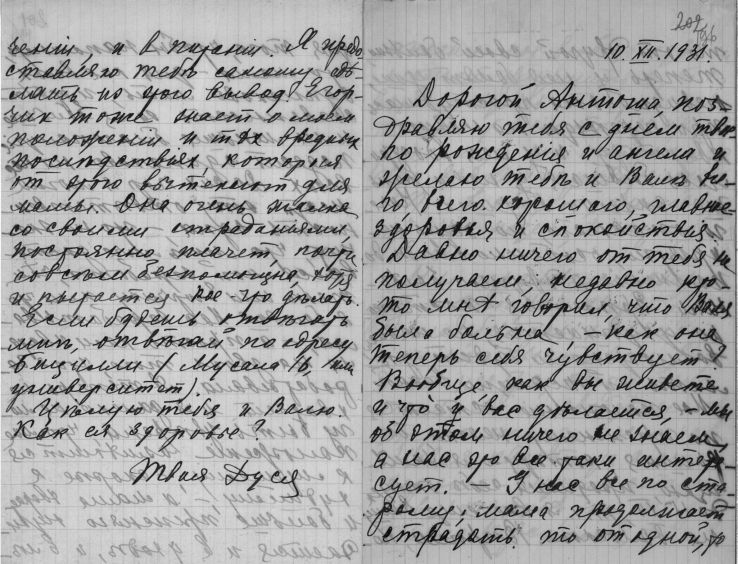 ченіи, и в питаніи. Я предо
ставляю тебѣ самому дѣ-
лать из этого вывод. Егор
чик тоже знает о моем
положеніи и тѣх вредных
послѣдствіях, которыя
от этого вытекают для
мамы. Она очень жалка
со своими страданіями
постоянно плачет, почти
совсѣм безпомощна, хотя
и пытается кое-что дѣлать.
Если будешь отвѣчать
мнѣ, отвѣчай по адресу
Бицилли (Мусала 16, или
университет).
Цѣлую тебя и Валю.
Как ея здоровье?
Твоя Дуся
202
10. XII. 1931.
Дорогой Антоша, поз-
дравляю тебя с днем тво-
го рожденія и ангела и
желаю тебѣ и Валѣ все-
го всего хорошаго, главное
здоровья и спокойствія.
Давно ничего от тебя не
получаем; недавно кто-
то мнѣ говорил, что Валя
была больна, – как она
теперь себя чувствует?
Вообще, как вы живете
и что у вас дѣлается, – мы
об этом ничего не знаем
а нас это все таки интере
сует. – У нас все по ста-
рому; мама продолжает
страдать то от одной, то